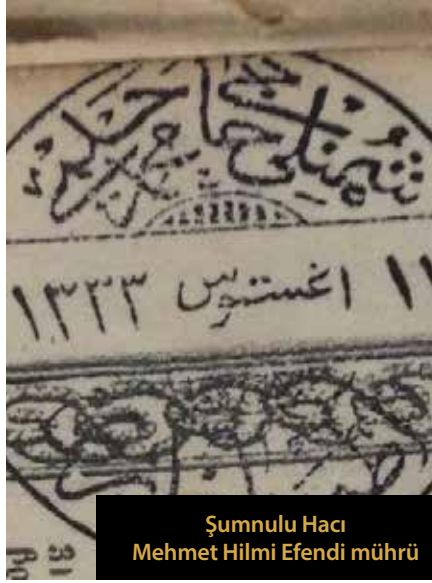 شمنلی حاجی محمد حلمی
١١ اغستوس ١٣٣٣
Şumnulu Hacı
Mehmet Hilmi Efendi mührü